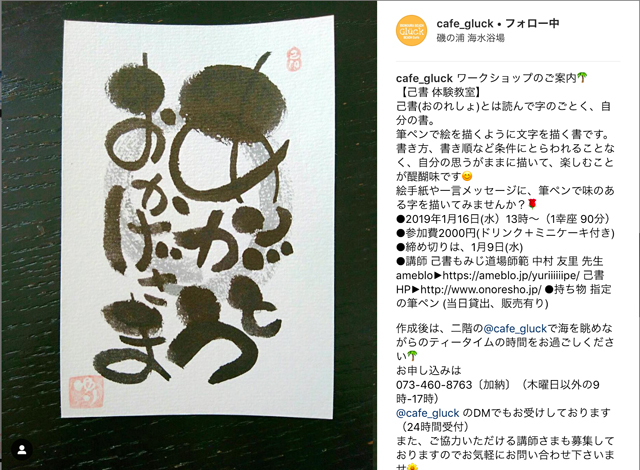 ありがとう
おかげさま
Gluck
cafe_gluck • フォロー中
磯の浦 海水浴場
cafe_gluck ワークショップのご案内🌴
【己書 体験教室】
己書(おのれしょ)とは読んで字のごとく、自
分の書。
筆ペンで絵を描くように文字を描く書です。
書き方、書き順など条件にとらわれることな
く、自分の思うがままに描いて、楽しむこと
が醍醐味です😊
絵手紙や一言メッセージに、筆ペンで味のあ
る字を描いてみませんか？🌹
●2019年1月16日(水）13時〜（1幸座 90分）
●参加費2000円(ドリンク＋ミニケーキ付き)
●締め切りは、1月9日(水)
●講師 己書もみじ道場師範 中村 友里 先生
ameblo▶https://ameblo.jp/yuriiiiiipe/ 己書
HP▶http://www.onoresho.jp/ ●持ち物 指定
の筆ペン (当日貸出、販売有り)
作成後は、二階の@cafe_gluckで海を眺めな
がらのティータイムの時間をお過ごしくださ
い🌴
お申し込みは
073-460-8763〔加納〕（木曜日以外の9
時-17時）
@cafe_gluck のDMでもお受けしております
（24時間受付）
また、ご協力いただける講師さまも募集して
おりますのでお気軽にお問い合わせ下さいま
せ🌼